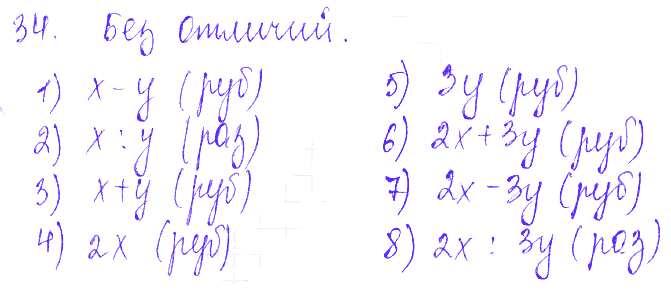 34. Без отличий.
1) x - y (руб)
2) x : y (раз)
3) x + y (руб)
4) 2x (руб)
5) 3y (руб)
6) 2x + 3y (руб)
7) 2x - 3y (руб)
8) 2x : 3y (раз)